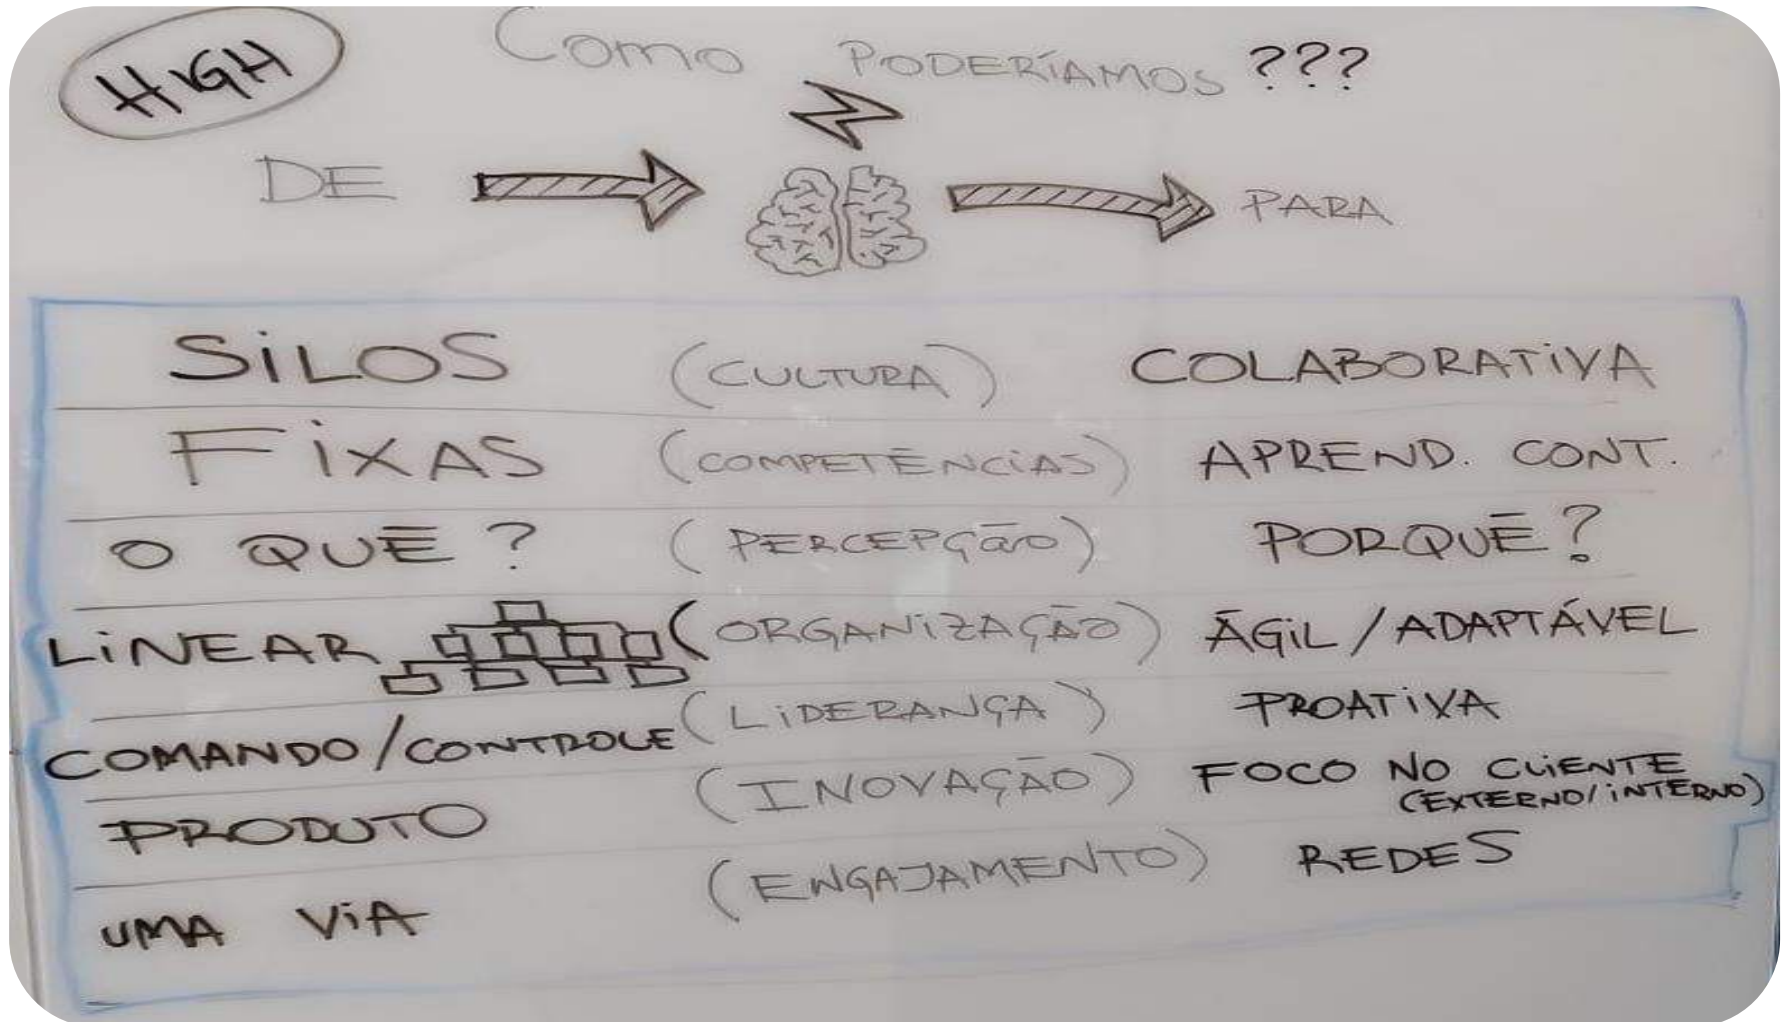 HIGH
Como PODERÍAMOS ???
DE PARA
SiLOS (CULTURA) COLABORATiVA
FiXAS (COMPETÊNCiAS) APREND. CONT.
O QUÊ? (PERCEPÇÃO) PORQUÊ?
LiNEAR (ORGANiZAÇÃO) ÁGiL/ADAPTÁVEL
COMANDO/CONTROLE (LiDERANÇA) PROATiVA
PRODUTO (INOVAÇÃO) FOCO NO CLiENTE
(EXTERNO/iNTERNO)
UMA ViA (ENGAJAMENTO) REDES